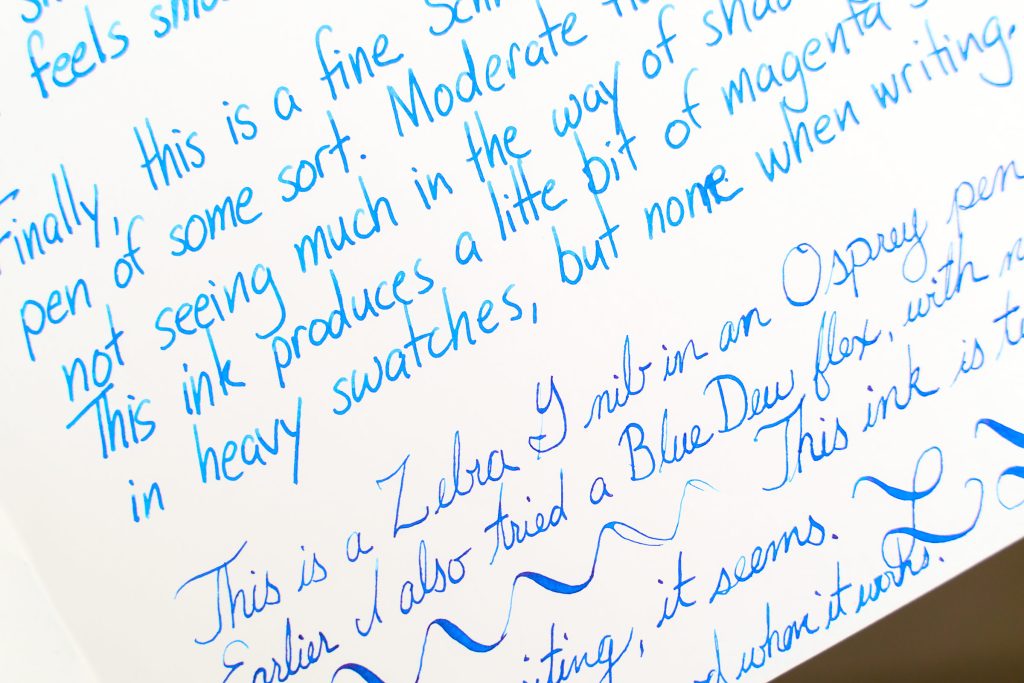 feels
Finally, this is a fine
pen of some sort. Moderate
not seeing much in the way of
This ink produces a little bit of magenta
in heavy swatches, but none when writing.
This is a Zebra G nib in an Osprey pen
Earlier I also tried a Blue Dew flex, with
This ink is
it seems.
when it works.